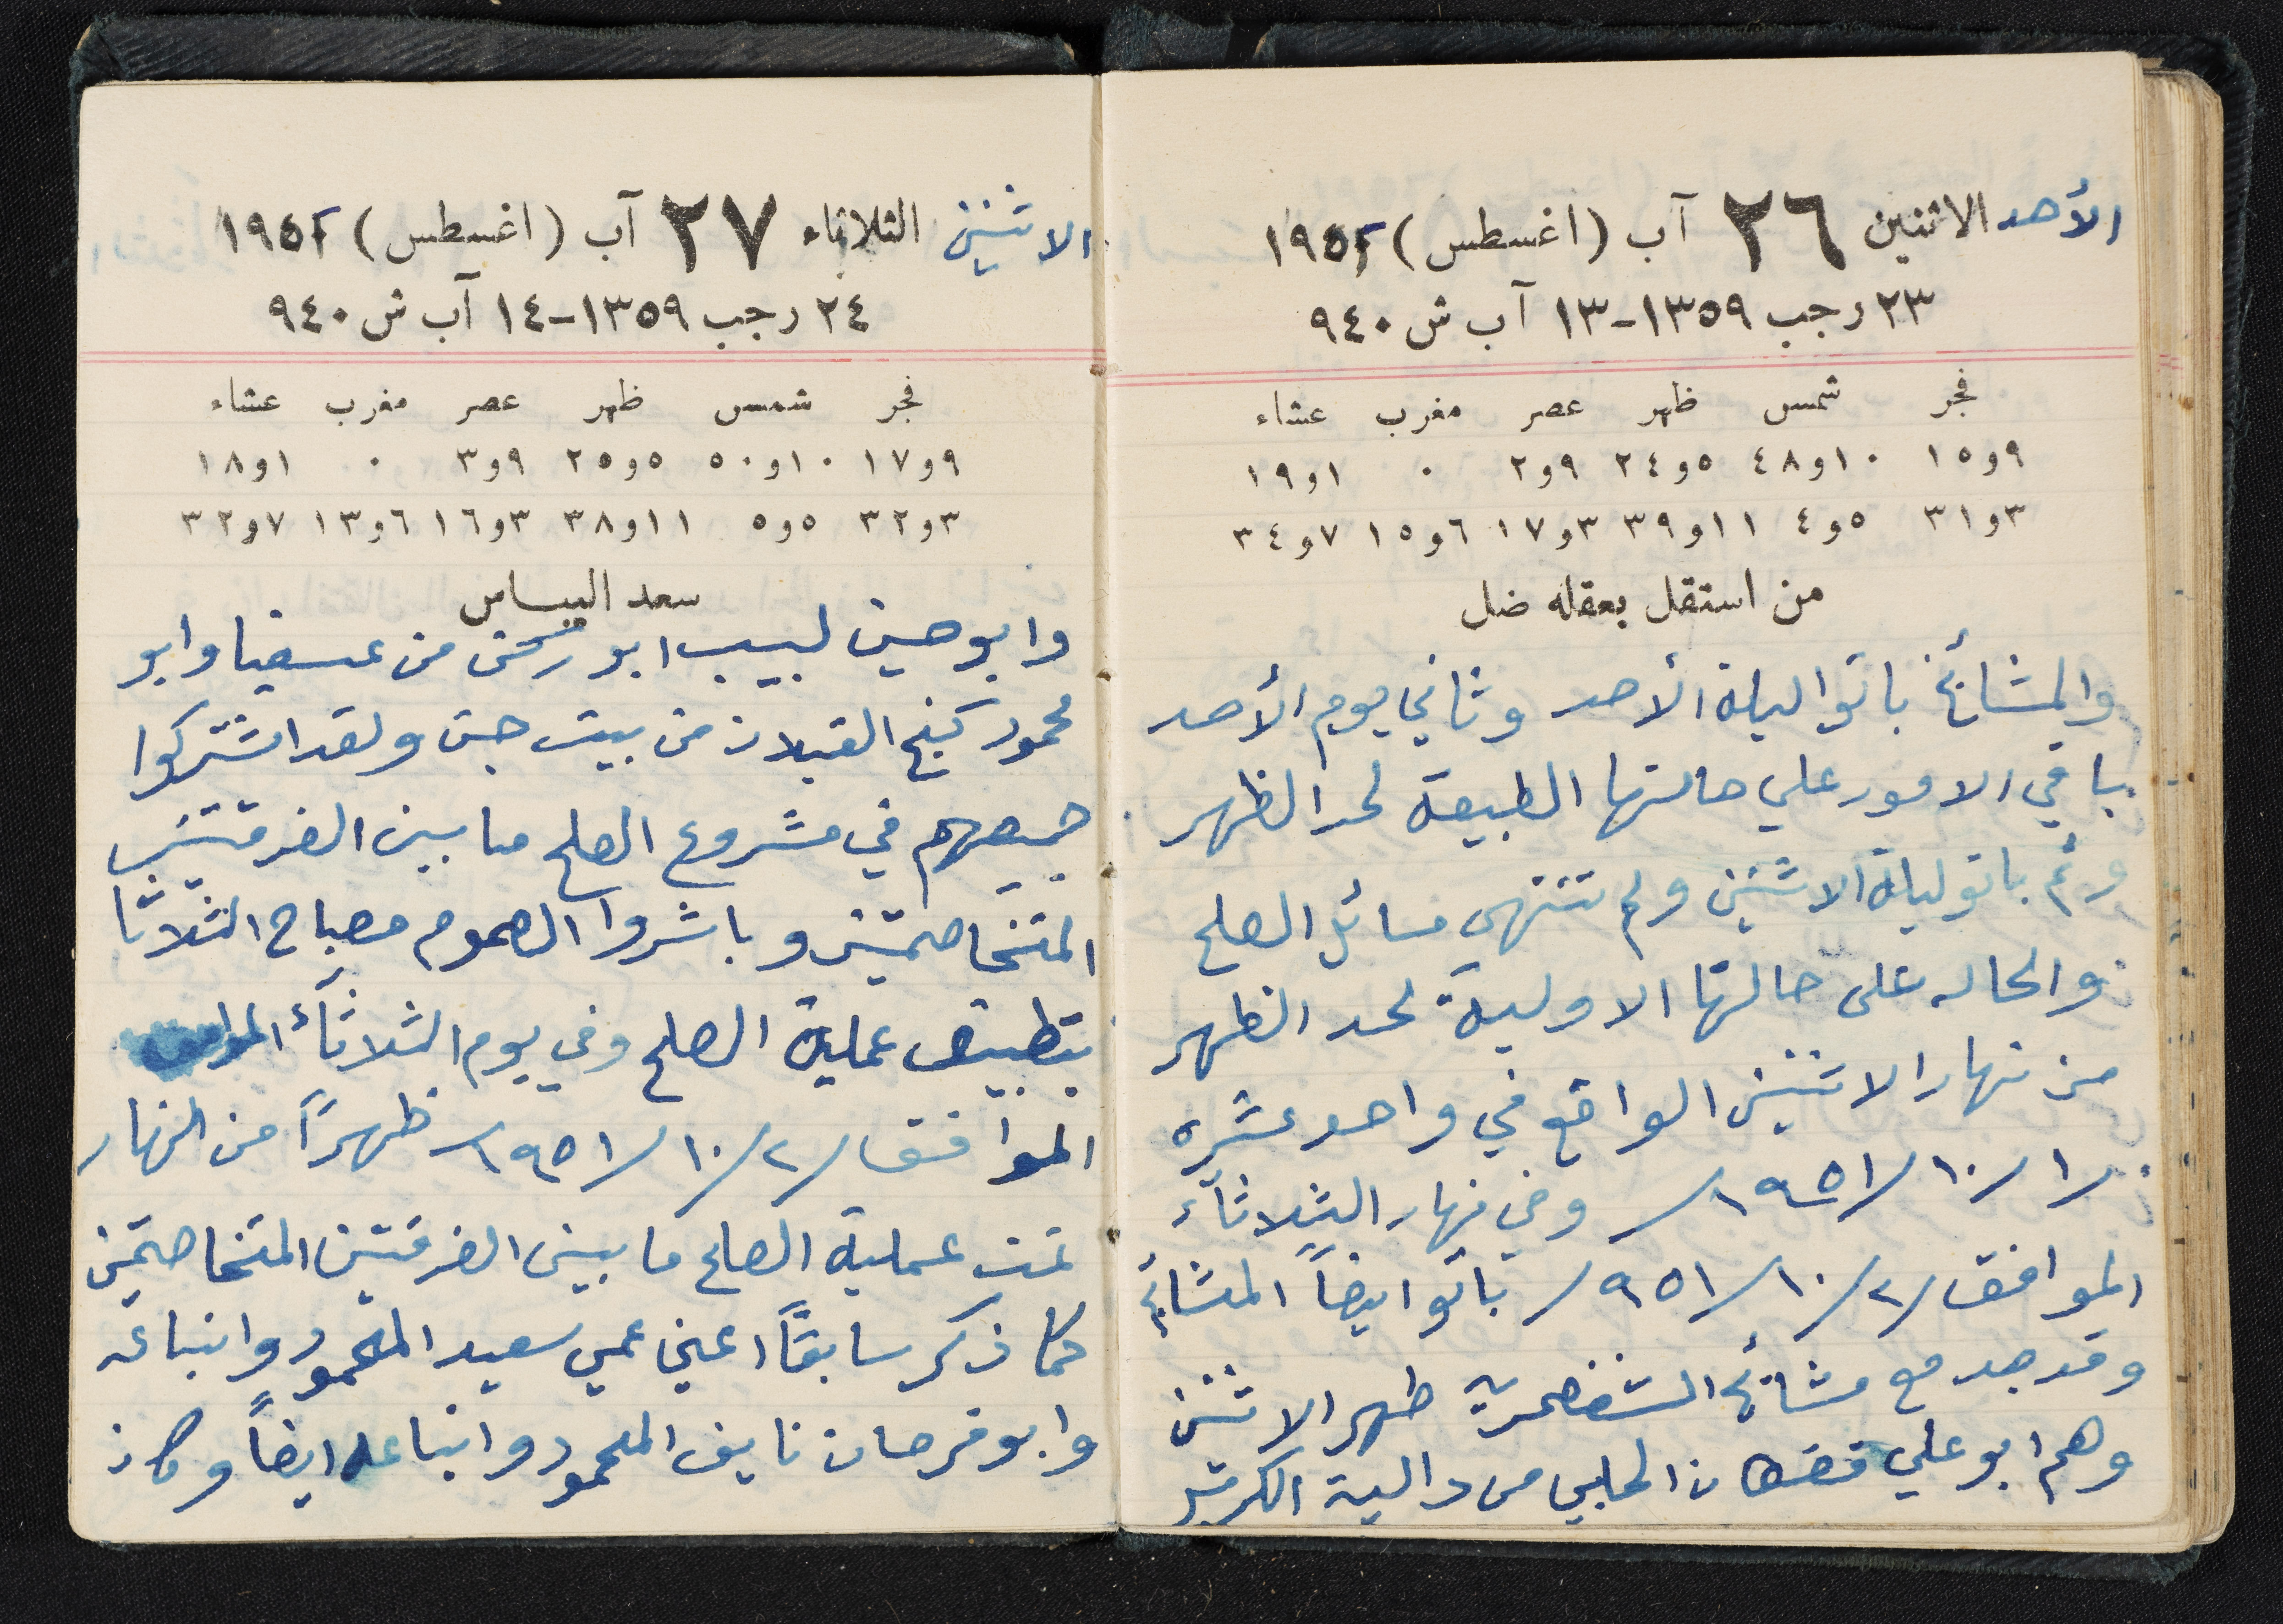 الأحد الاثنين ٢٦ آب (اغسطس) ١٩٥٢
٢٣ رجب ١٣٥٩-١٣ آب ش ٩٤٠
فجر شمس ظهر عصر مغرب عشاء
٩و١٥ ١٠و٤٨ ٥و٢٤ ٩و٢ ٠ ١و١٩
٣و٣١ ٥و٤ ١١و٣٩ ٣و١٧ ٦و١٥ ٧و٣٤
من استقل بعقله ضل
والمشائخ باتوا ليلة الأحد وثاني يوم الأحد
باقي الامور على حالتها الطبيعة لحد الظهر
وثم باتو ليلة الاثنين ولم تنتهي مسائل الصلح
والحاله على حالتها الاولية لحد الظهر
من نهار الاثنين الواقع في واحد عشره
١/١٠/١٩٥١/ وفي نهار الثلاثاء
الموافق /٢/١٠/٩٥١/ باتوا ايضاً المشائخ
وقد جد مع مشائخ الشفهمرية ظهر الاثنين
وهم ابو علي الحلبي من دالية الكرمل
الاثنين الثلاثاء ٢٧ آب (اغسطس) ١٩٥٢
٢٤ رجب ١٣٥٩-١٤ آب ش ٩٤٠
فجر شمس ظهر عصر مغرب عشاء
٩و١٧ ١٠و٥٠ ٥و٢٥ ٩و٣ ٠ ١و١٨
٣و٣٢ ٥و٥ ١١و٣٨ ٣و١٦ ٦و١٣ ٧و٣٢
سعد البساس
وابو حسين لبيب ابو ركن من عسفيا وابو
محمود كنج القبلان من بيت جن ولقد اشتركوا
جميعهم في مشروع الصلح ما بين الفرقتين
المتخاصمتين وباشروا العموم صباح الثلاثا
بتطبيق عملية الصلح وفي يوم الثلاثآء
الموافق /٢/١٠/١٩٥١/ ظهراً من النهار
تمت عملية الصلح ما بين الفرقتين المتخاصمتين
كما ذكر سابقاً اعني عمي سعيد المحمود واتباعه
وابو فرحان نايف المحمود واتباعه ايضاً وكان